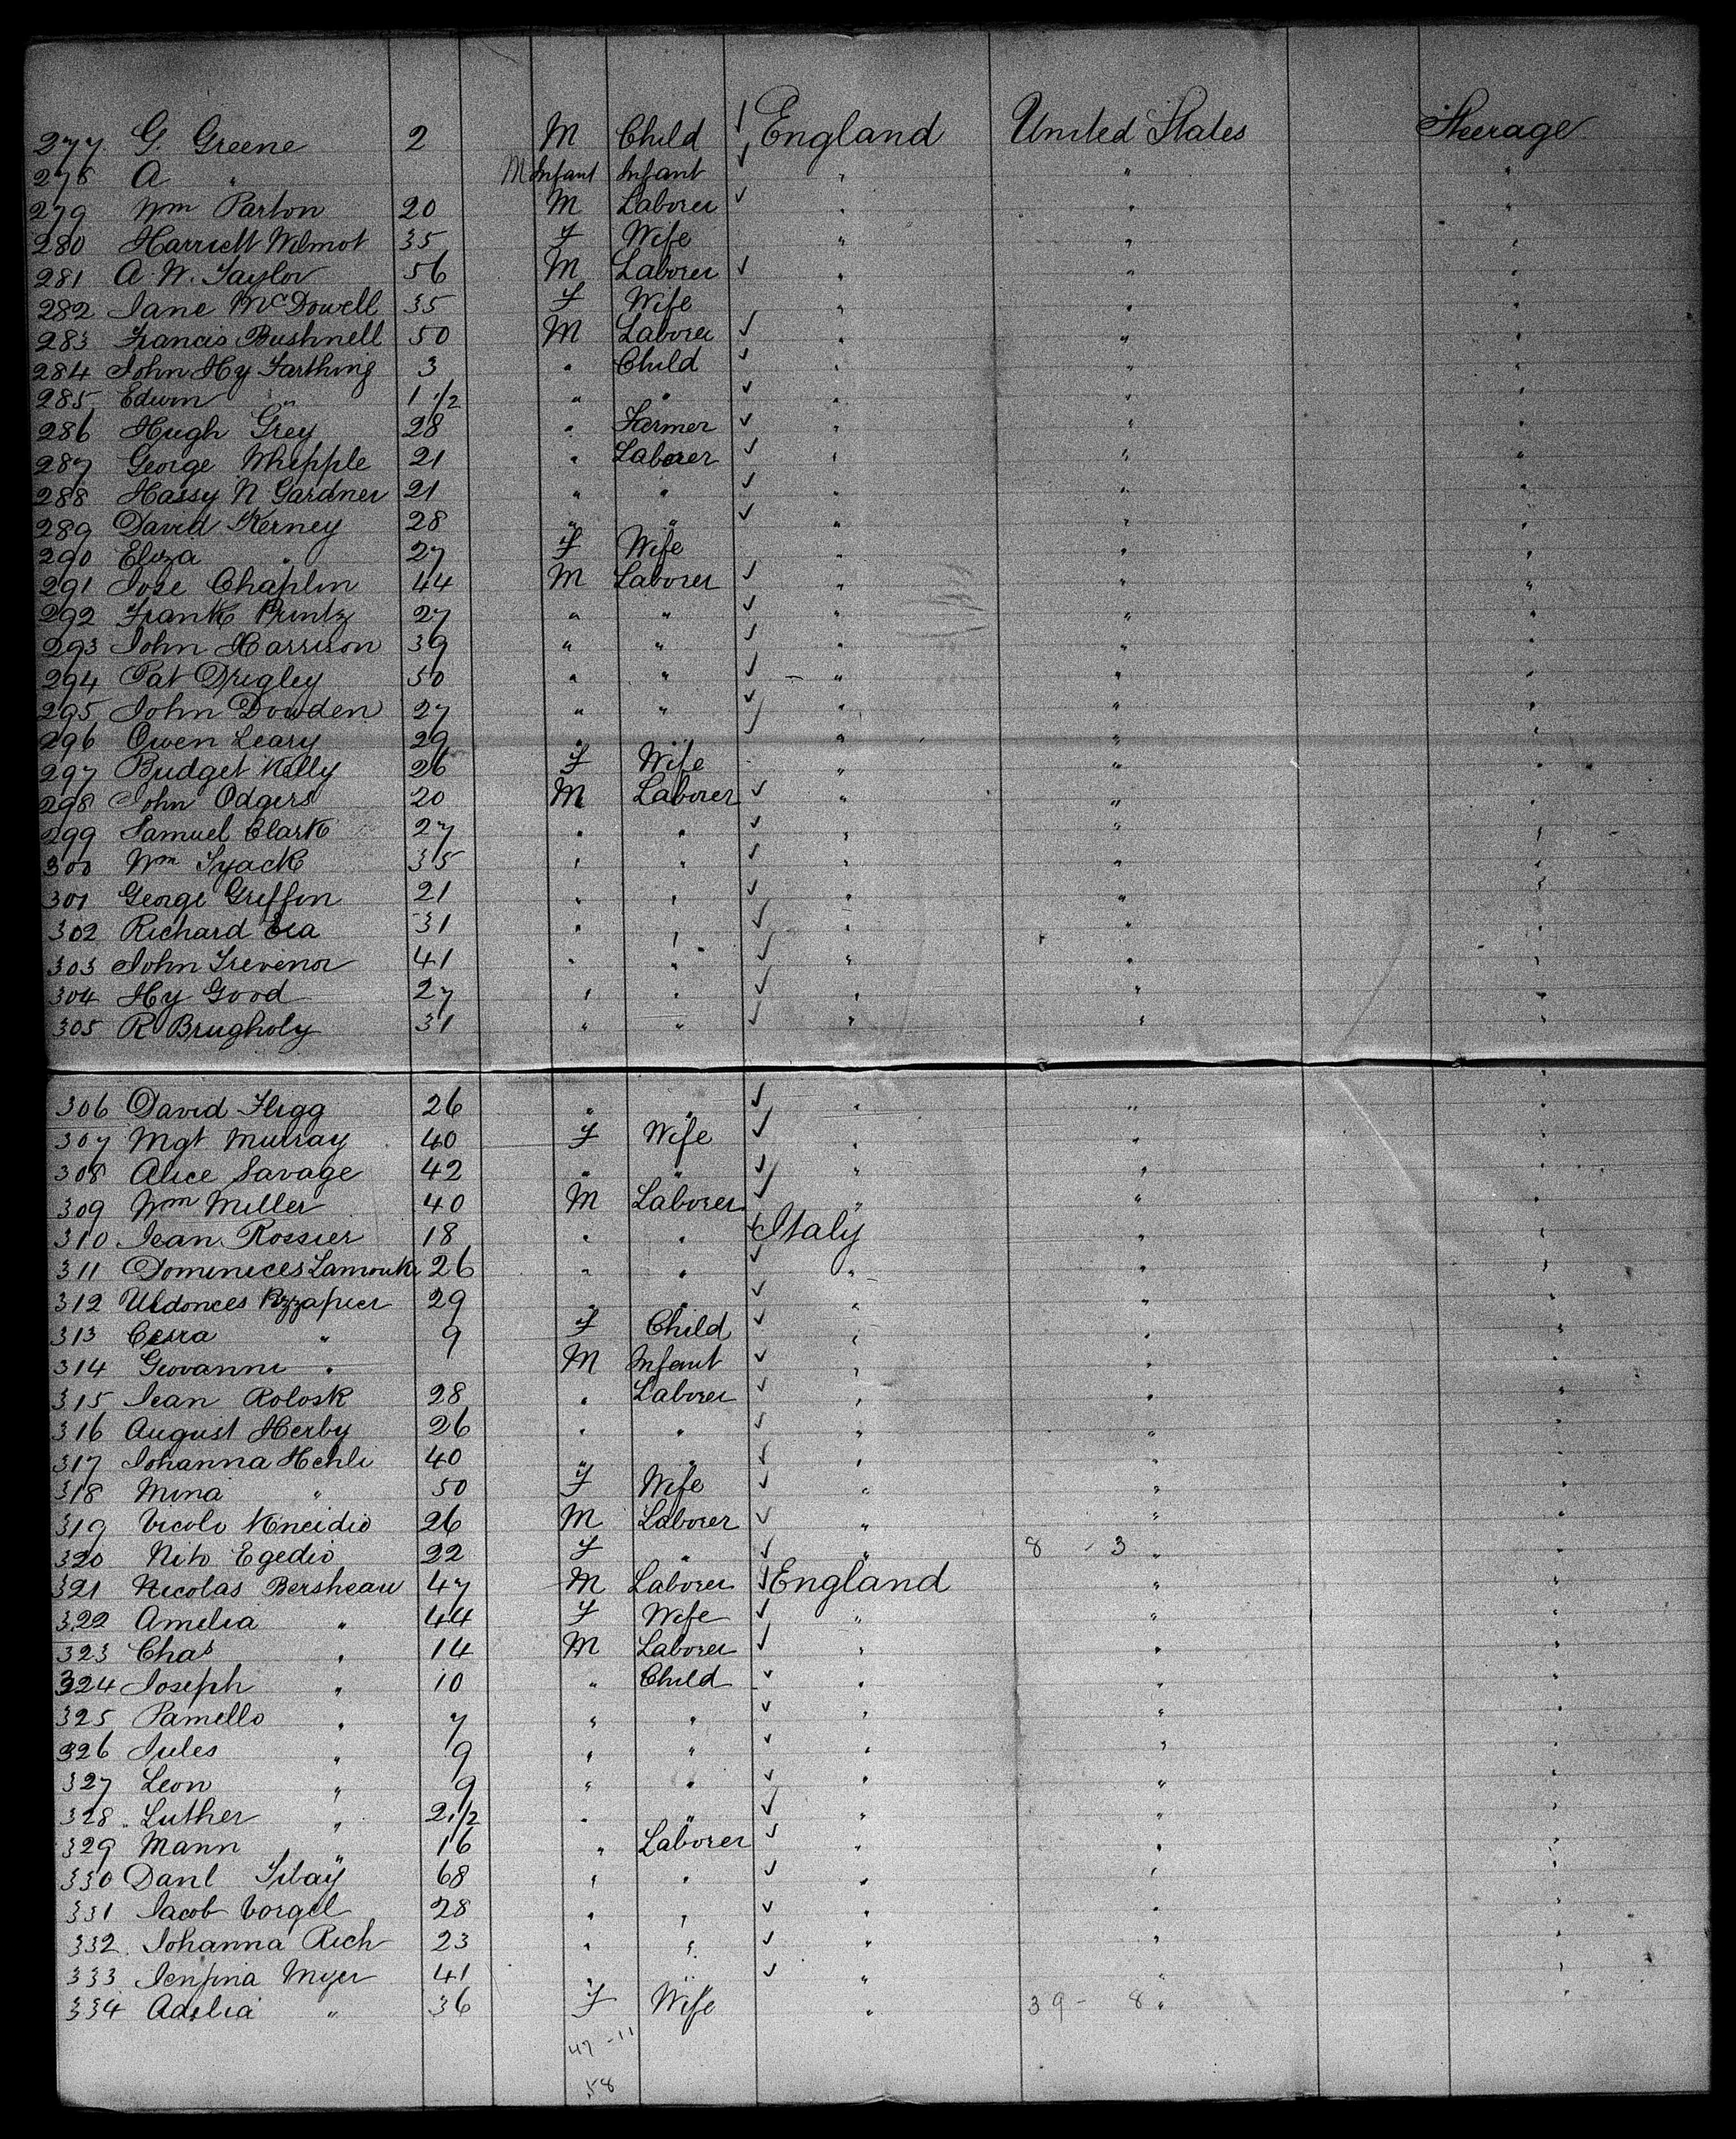 277 G. Greene 2 M Child ✓ England United States Steerage
278 A " M Infant Infant ✓ " " "
279 Wm Parton 20 M Laborer ✓ " " "
280 Harriett Wilmot 35 F Wife " " "
281 A. W. Taylor 56 M Laborer ✓ " " "
282 Jane McDowell 35 F Wife " " "
283 Francis Bushnell 50 M Laborer ✓ " " "
284 John Hy Farthing 3 " Child ✓ " " "
285 Edwin " 1 1/2 " " ✓ " " "
286 Hugh Grey 28 " Farmer ✓ " " "
287 George Whipple 21 " Laborer ✓ " " "
288 Hassy N Gardner 21 " " ✓ " " "
289 David Kerney 28 " " ✓ " " "
290 Eliza " 27 F Wife " " "
291 Jose Chaplin 44 M Laborer ✓ " " "
292 Frank Printz 27 " " ✓ " " "
293 John Harrison 39 " " ✓ " " "
294 Pat Drigley 50 " " ✓ " " "
295 John Dowden 27 " " ✓ " " "
296 Owen Leary 29 " " ✓ " " "
297 Bridget Kelly 26 F Wife " " "
298 John Odgers 20 M Laborer ✓ " " "
299 Samuel Clark 27 " " ✓ " " "
300 Wm Tyack 35 " " ✓ " " "
301 George Griffin 21 " " ✓ " " "
302 Richard 31 " " ✓ " " "
303 John Trevenor 41 " " ✓ " " "
304 Hy Good 27 " " ✓ " " "
305 R Brugholy 31 " " ✓ " " "
306 David Fligg 26 " " ✓ " " "
307 Mgt Murray 40 F Wife ✓ " " "
308 Alice Savage 42 " " ✓ " " "
309 Wm Miller 40 M Laborer ✓ " " "
310 Jean Rossier 18 " " ✓ Italy " "
311 Dominices Lamouk 26 " " ✓ " " "
312 29 " " ✓ " " "
313 " 9 F Child ✓ " " "
314 Giovanni " M Infant ✓ " " "
315 Jean Rolosk 28 " Laborer ✓ " " "
316 August Herby 26 " " ✓ " " "
317 Johanna Hehli 40 " " ✓ " " "
318 Mina " 50 F Wife ✓ " " "
319 26 M Laborer ✓ " " "
320 Nito Egedio 22 F " ✓ " 8 - 3 " "
321 Nicolas Bersheau 47 M Laborer ✓ England " "
322 Amelia " 44 F Wife ✓ " " "
323 Chas " 14 M Laborer ✓ " " "
324 Joseph " 10 " Child ✓ " " "
325 Pamello " 7 " " ✓ " " "
326 Jules " 9 " " ✓ " " "
327 Leon " 9 " " ✓ " " "
328 Luther " 2 1/2 " " ✓ " " "
329 Mann " 16 " Laborer ✓ " " "
330 Danl 68 " " ✓ " " "
331 Jacob Vorgel 28 " " ✓ " " "
332 Johanna Rich 23 " " ✓ " " "
333 Myer 41 " " ✓ " " "
334 Adelia " 36 F Wife " 39 - 8 " "
47 - 11
58